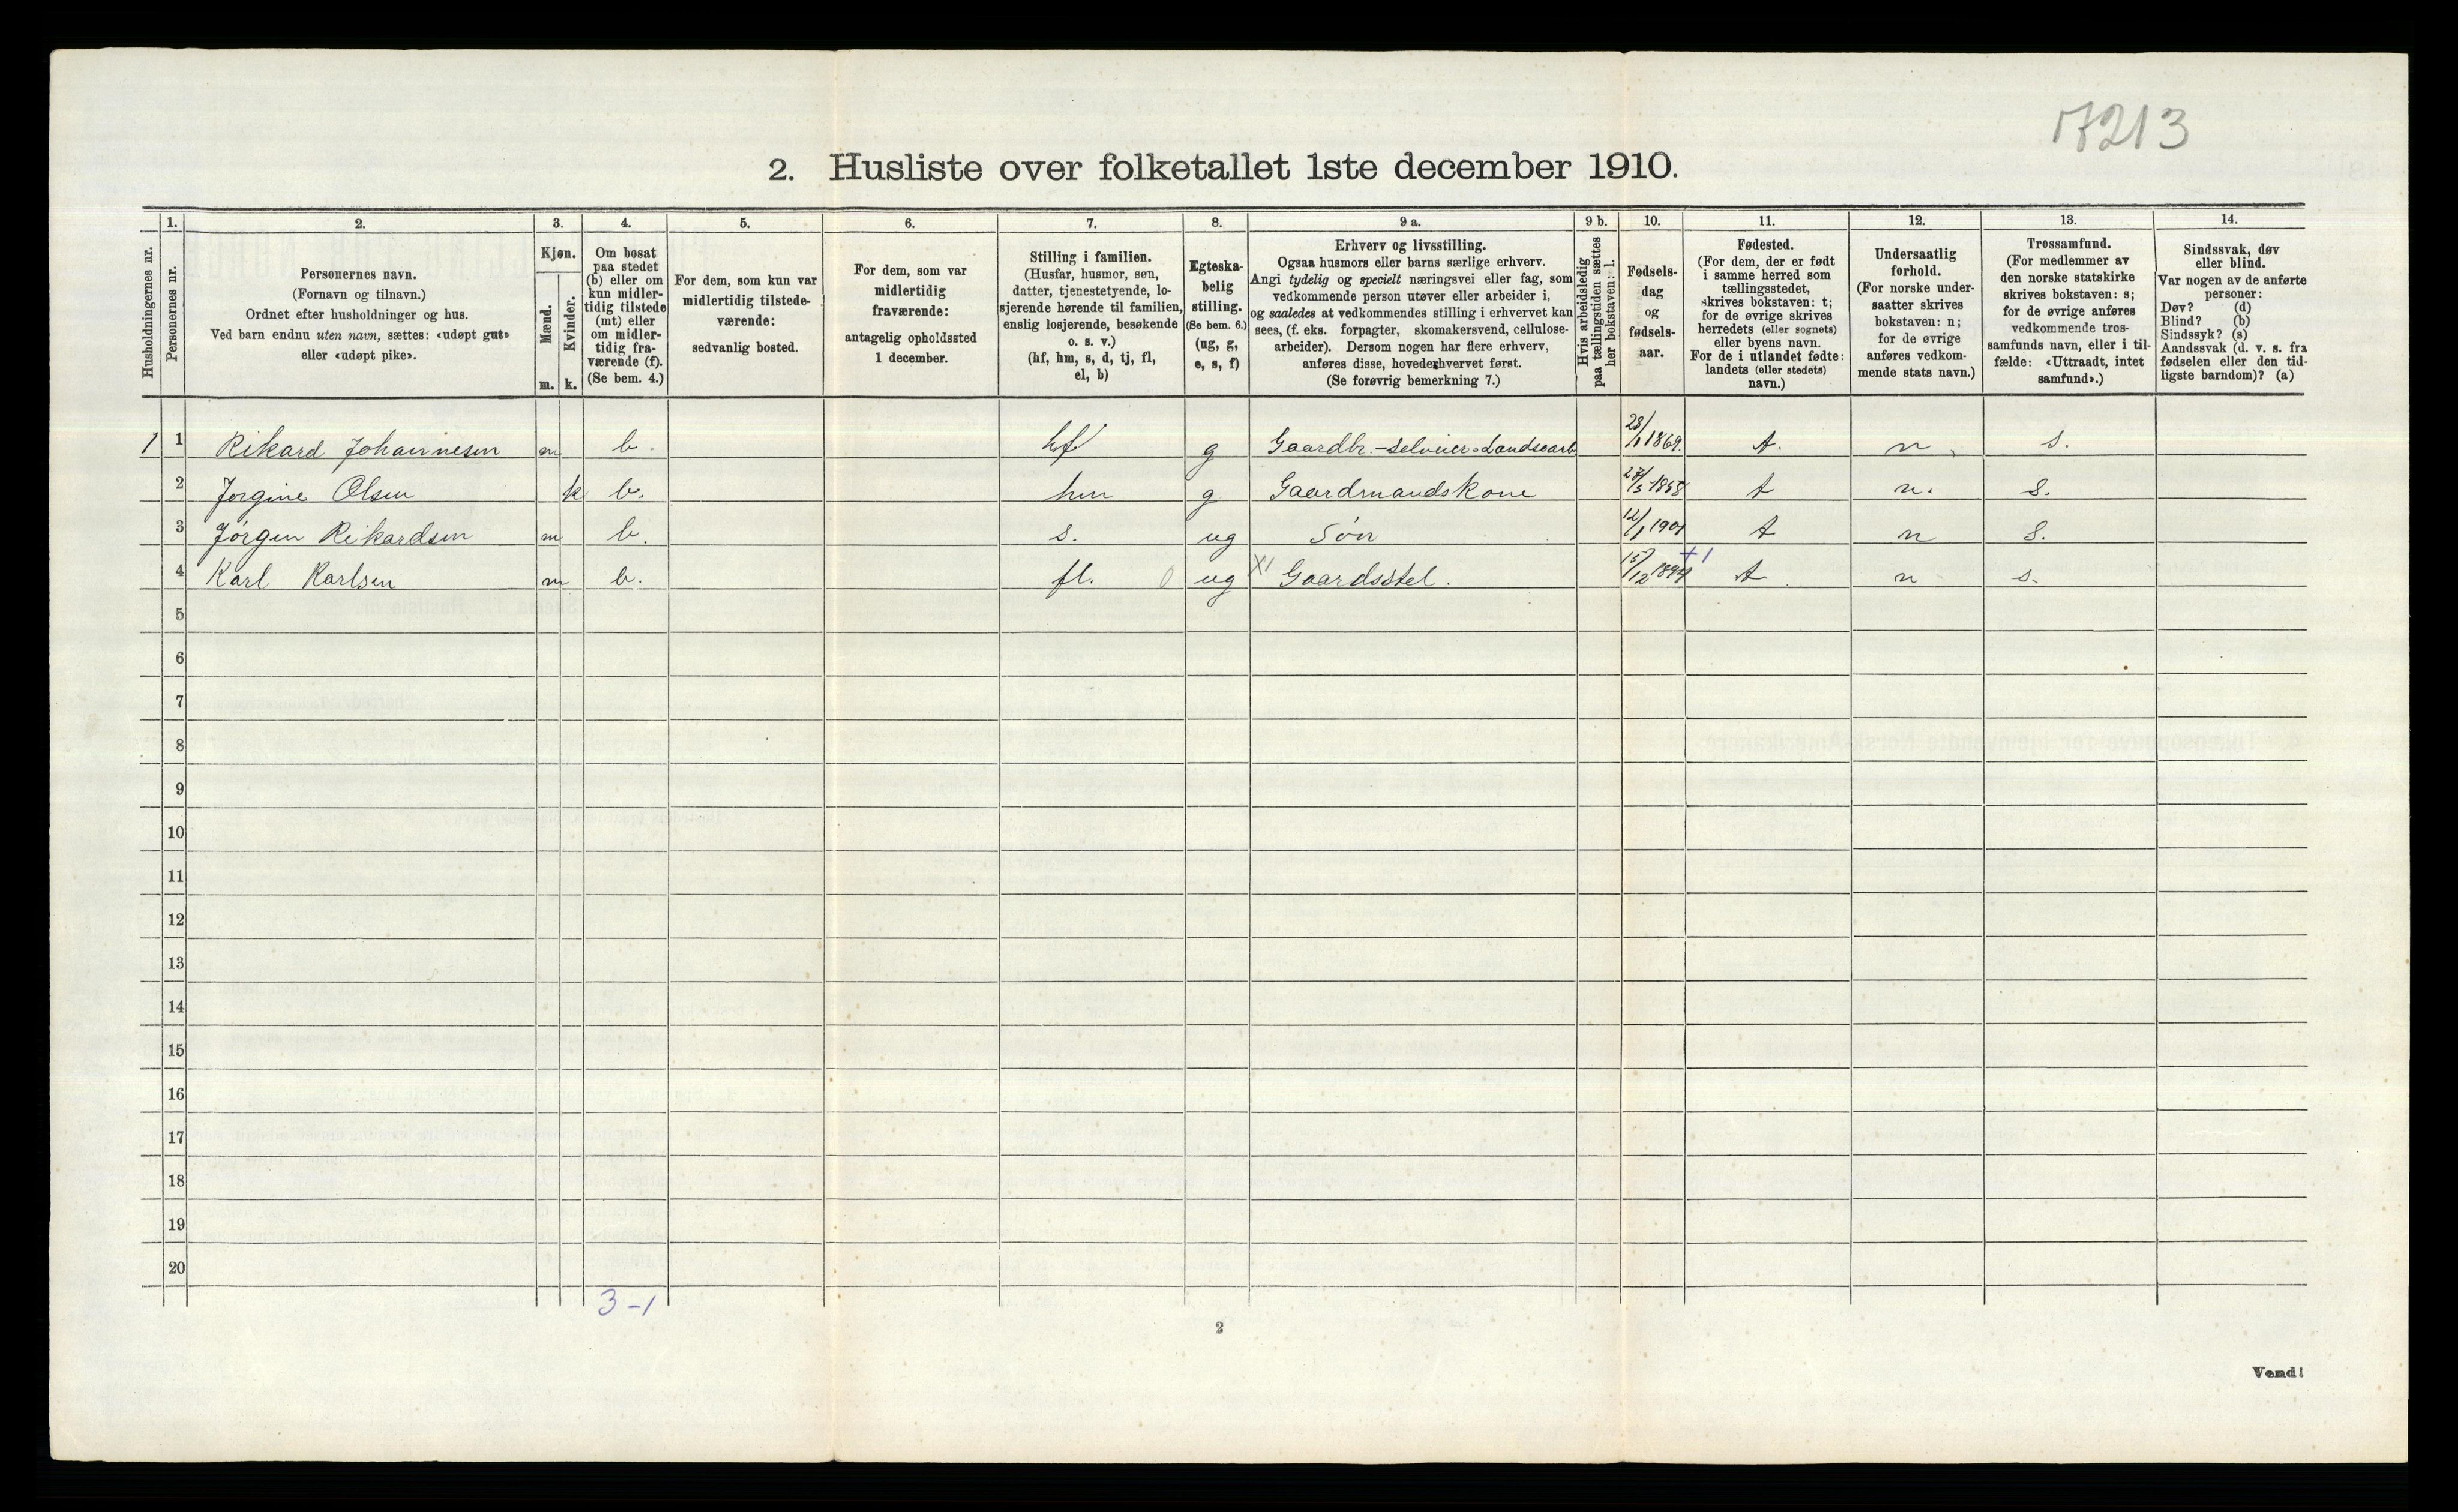 17213
2. Husliste over folketallet 1ste december 1910.
Husholdningernes nr.
1.
Personernes nr.
2.
Personernes navn.
(Fornavn og tilnavn.)
Ordnet efter husholdninger og hus.
Ved barn endnu uten navn, sættes: «udøpt gut»
eller «udøpt pike».
3.
Kjøn.
Mænd.
Kvinder.
m. k.
4.
Om bosat
paa stedet
(b) eller om
kun midler-
tidig tilstede
(mt) eller
om midler-
tidig fra-
værende (f).
(Se bem. 4.)
5.
For dem, som kun var
midlertidig tilstede-
værende:
sedvanlig bosted.
6.
For dem, som var
midlertidig
fraværende:
antagelig opholdssted
1 december.
7.
Stilling i familien.
(Husfar, husmor, søn,
datter, tjenestetyende, lo-
sjerende hørende til familien,
enslig losjerende, besøkende
o. s. v.)
(hf, hm, s, d, tj, fl,
el, b)
8.
Egteska-
belig
stilling.
(Se bem. 6.)
(ug, g,
e, s, f)
9 a.
Erhverv og livsstilling.
Ogsaa husmors eller barns særlige erhverv.
Angi tydelig og specielt næringsvei eller fag, som
vedkommende person utøver eller arbeider i,
og saaledes at vedkommendes stilling i erhvervet kan
sees, (f. eks. forpagter, skomakersvend, cellulose-
arbeider). Dersom nogen har flere erhverv,
anføres disse, hovederhvervet først.
(Se forøvrig bemerkning 7.)
9 b.
Hvis arbeidsledig
paa tællingstiden sættes
her bokstaven: l.
10.
Fødsels-
dag
og
fødsels-
aar.
11.
Fødested.
(For dem, der er født
i samme herred som
tællingsstedet,
skrives bokstaven: t;
for de øvrige skrives
herredets (eller sognets)
eller byens navn.
For de i utlandet fødte:
landets (eller stedets)
navn.)
12.
Undersaatlig
forhold.
(For norske under-
saatter skrives
bokstaven: n;
for de øvrige
anføres vedkom-
mende stats navn.)
13.
Trossamfund.
(For medlemmer av
den norske statskirke
skrives bokstaven: s;
for de øvrige anføres
vedkommende tros-
samfunds navn, eller i til-
fælde: «Uttraadt, intet
samfund».)
14.
Sindssvak, døv
eller blind.
Var nogen av de anførte
personer:
Døv? (d)
Blind? (b)
Sindssyk? (s)
Aandssvak (d. v. s. fra
fødselen eller den tid-
ligste barndom)? (a)
1 1 Rikard Johannesen m b. hf g Gaardbr.-selveier. Landsearb 28/1 1869. t. n. s.
2 Jorgine Olsen k b. hm g Gaardmandskone 1858 t n. s.
3 Jørgen Rikardsen m b. s. ug Søn 12/1 1901 t n s.
4 Karl Karlsen m b. fl. 0 ug X1 Gaardsstel. 15/12 1894 +1 t n s.
5
6
7
8
9
10
11
12
13
14
15
16
17
18
19
20
3-1
2
Vend!